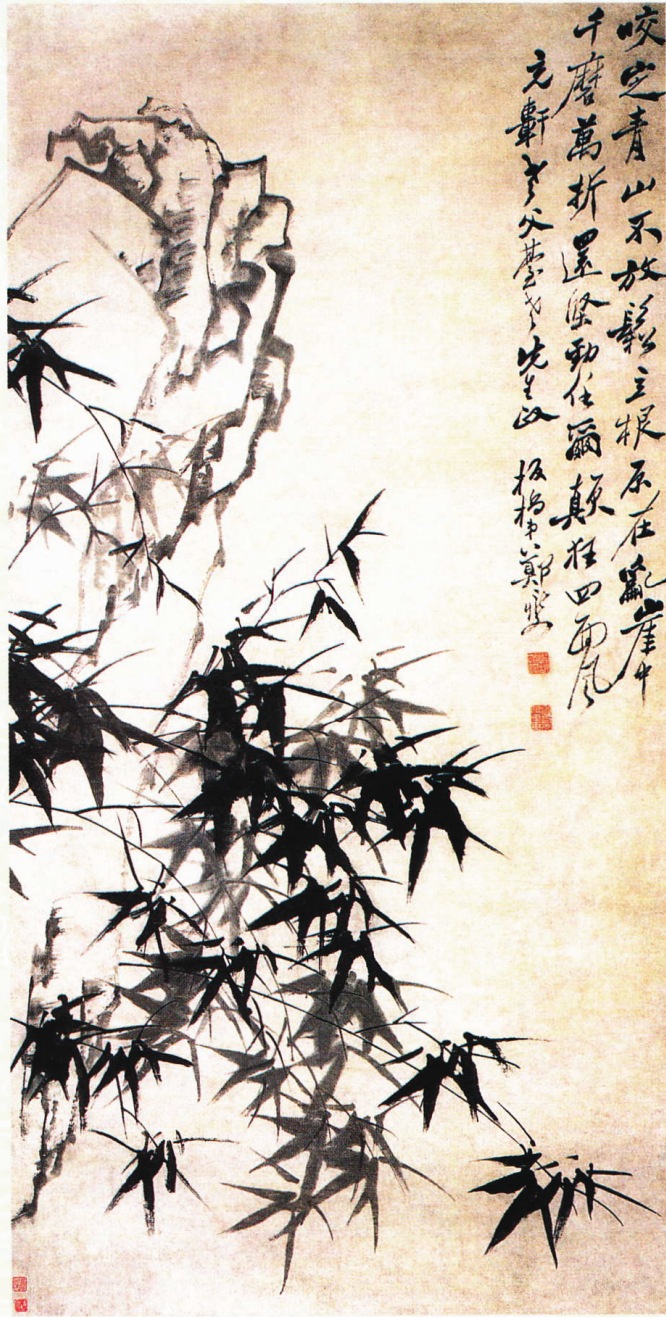 咬定青山不放鬆立根原在亂崖中
千磨萬折還堅勁任爾顛狂四面風
充軒老父臺老先生政 板橋弟鄭燮